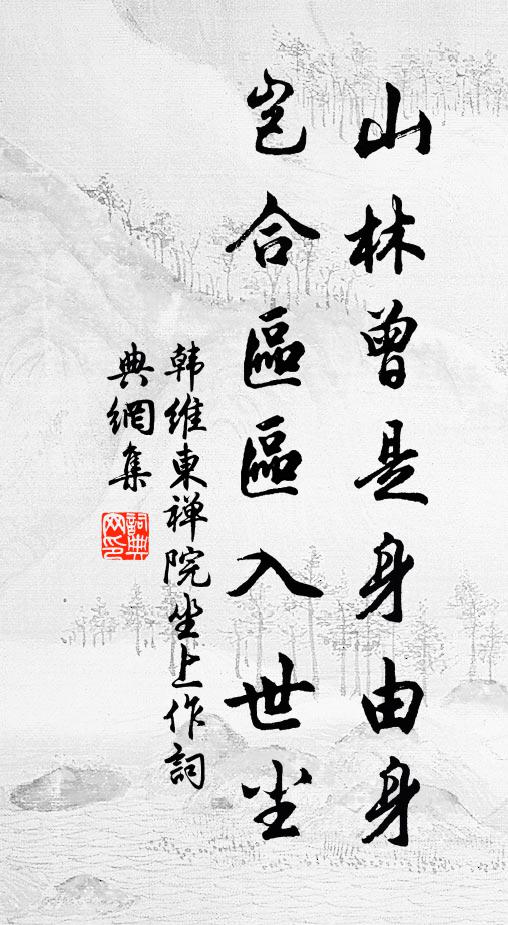 山林曾是身由身
岂合區區入世尘
韩維東禅院坐上作詞
典網集
詞典
网印